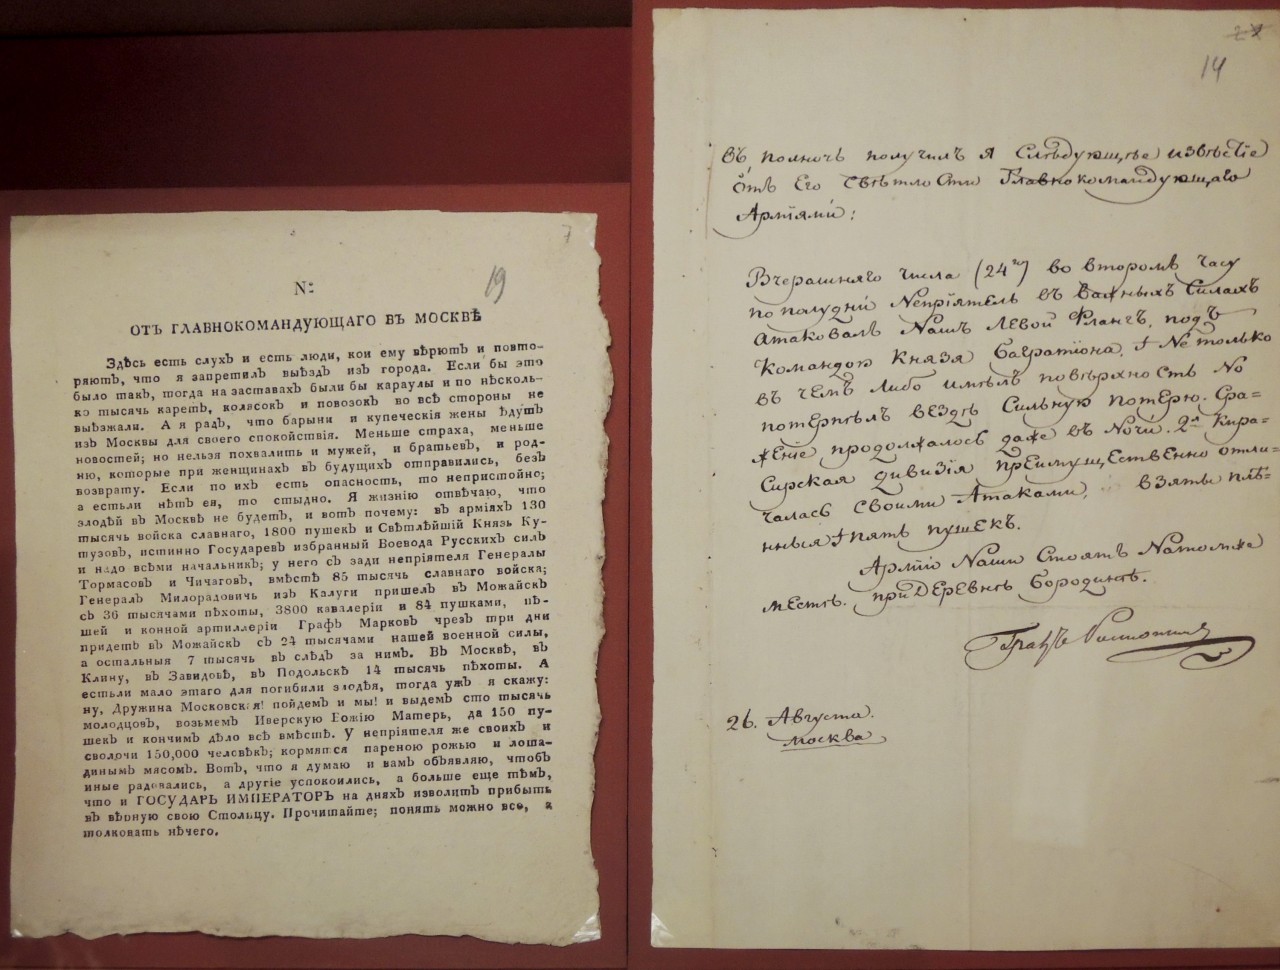 7
19
№:
ОТЪ ГЛАВНОКОМАНДУЮЩАГО ВЪ МОСКВѢ
Здѣсь есть слухъ и есть люди, кои ему вѣрютъ и повто-
ряютъ, что я запретилъ выѣздъ изъ города. Если бы это
было такъ, тогда на заставахъ были бы караулы и по нѣсколь-
ко тысячь каретъ, колясокъ и повозокъ во всѣ стороны не
выѣзжали. А я радъ, что барыни и купеческія жены ѣдутъ
изъ Москвы для своего спокойствія. Меньше страха, меньше
новостей; но нельзя похвалить и мужей, и братьевъ, и род-
ню, которые при женщинахъ въ будущихъ отправились, безъ
возврату. Если по ихъ есть опасность, то непристойно;
а естьли нѣтъ ея, то стыдно. Я жизнію отвѣчаю, что
злодѣй въ Москвѣ не будетъ, и вотъ почему: въ арміяхъ 130
тысячь войска славнаго, 1800 пушекъ и Свѣтлѣйшій Князь Ку-
тузовъ, истинно Государевъ избранный Воевода Русскихъ силъ
и надо всѣми начальникъ; у него съ зади непріятеля Генералы
Тормасовъ и Чичаговъ, вмѣстѣ 85 тысячь славнаго войска;
Генералъ Милорадовичь изъ Калуги пришелъ въ Можайскъ
съ 36 тысячами пѣхоты, 3800 кавалеріи и 84 пушками, пѣ-
шей и конной артиллеріи Графъ Марковъ чрезъ три дни
придетъ въ Можайскъ съ 24 тысячами нашей военной силы,
а остальныя 7 тысячь въ слѣдъ за нимъ. Въ Москвѣ, въ
Клину, въ Завидовѣ, въ Подольскѣ 14 тысячь пѣхоты. А
естьли мало этаго для погибили злодѣя, тогда ужъ я скажу:
ну, Дружина Московская! пойдемъ и мы! и выдемъ сто тысячь
молодцовъ, возьмемъ Иверскую Божію Матерь, да 150 пу-
шекъ и кончимъ дѣло всѣ вмѣстѣ. У непріятеля же своихъ и
сволочи 150,000 человѣкъ; кормятся пареною рожью и лоша-
динымъ мясомъ. Вотъ, что я думаю и вамъ объявляю, чтобъ
иные радовались, а другіе успокоились, а больше еще тѣмъ,
что и ГОСУДАРЬ ИМПЕРАТОРЪ на дняхъ изволитъ прибыть
въ вѣрную свою Столицу. Прочитайте; понять можно все, а
толковать нѣчего.
14
Въ полночь получилъ я Слѣдующѣе извѣстіе
отъ Его Свѣтлости Главнокомандующаго
Арміями:
Вчерашняго числа (24го) во второмъ часу
по полудни Непріятель въ важныхъ Силахъ
атаковалъ нашъ левой флангъ, подъ
Командою Князя Багратіона, и не только
въ чемъ либо имѣлъ повѣрхность но
потерпѣлъ вездѣ Сильную потерю. Сра-
женіе продолжалось даже въ Ночи. 2я Кира-
Сирская дивизія преимущественно отли-
чалась своими Атаками, взяты плѣ-
нныя и пять пушекъ.
Арміи Наши Стоятъ Натомже
местѣ. при Деревнѣ Бородинѣ.
Графъ Растопчинъ
26. Августа.
Москва